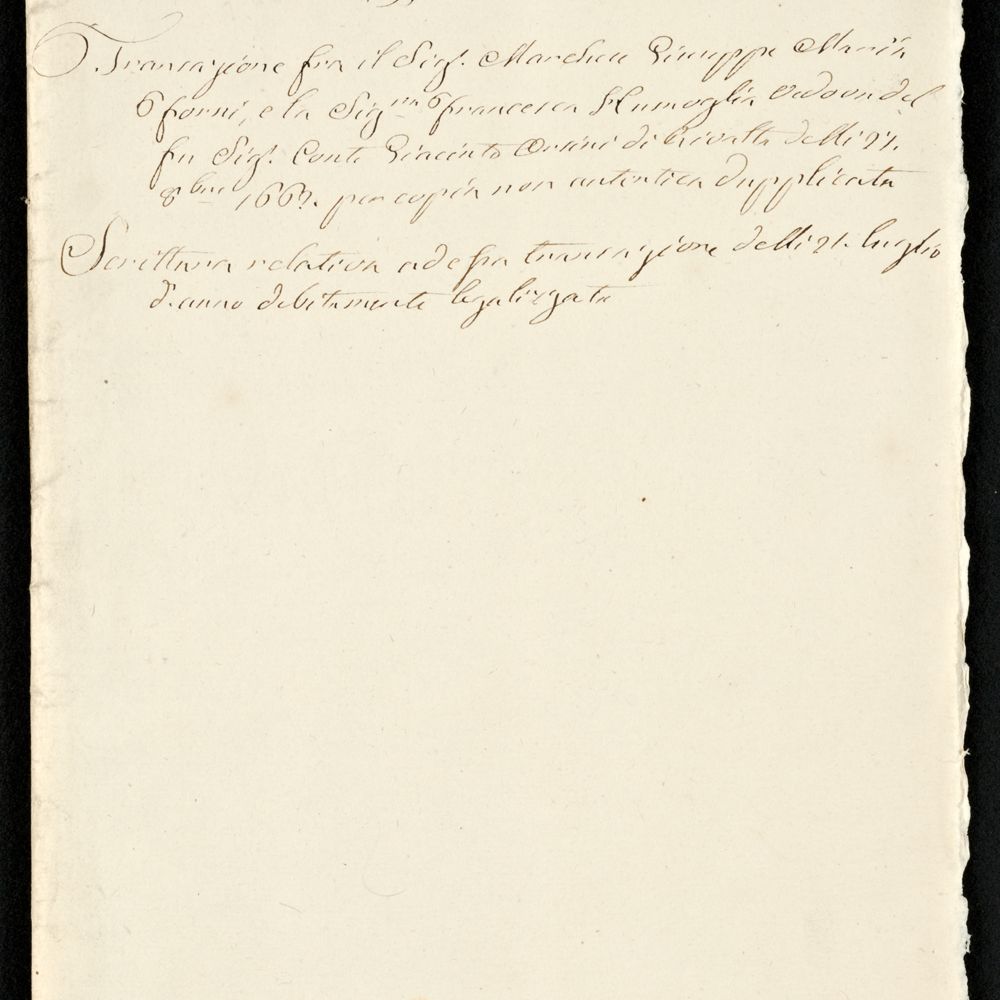 Transazione fra il Sigr. Marchese Giuseppe Maria
Sforni, e la Sigra Francesca Scumoglia Vedova del
fu Sigr. Conte Giacinto Orsini di Rivalta delli 27.
8bre 1662. per copia non autentica dupplicata
Scrittura relativa ad essa transazione delli 21. luglio
d.o anno debitamente legalizzata